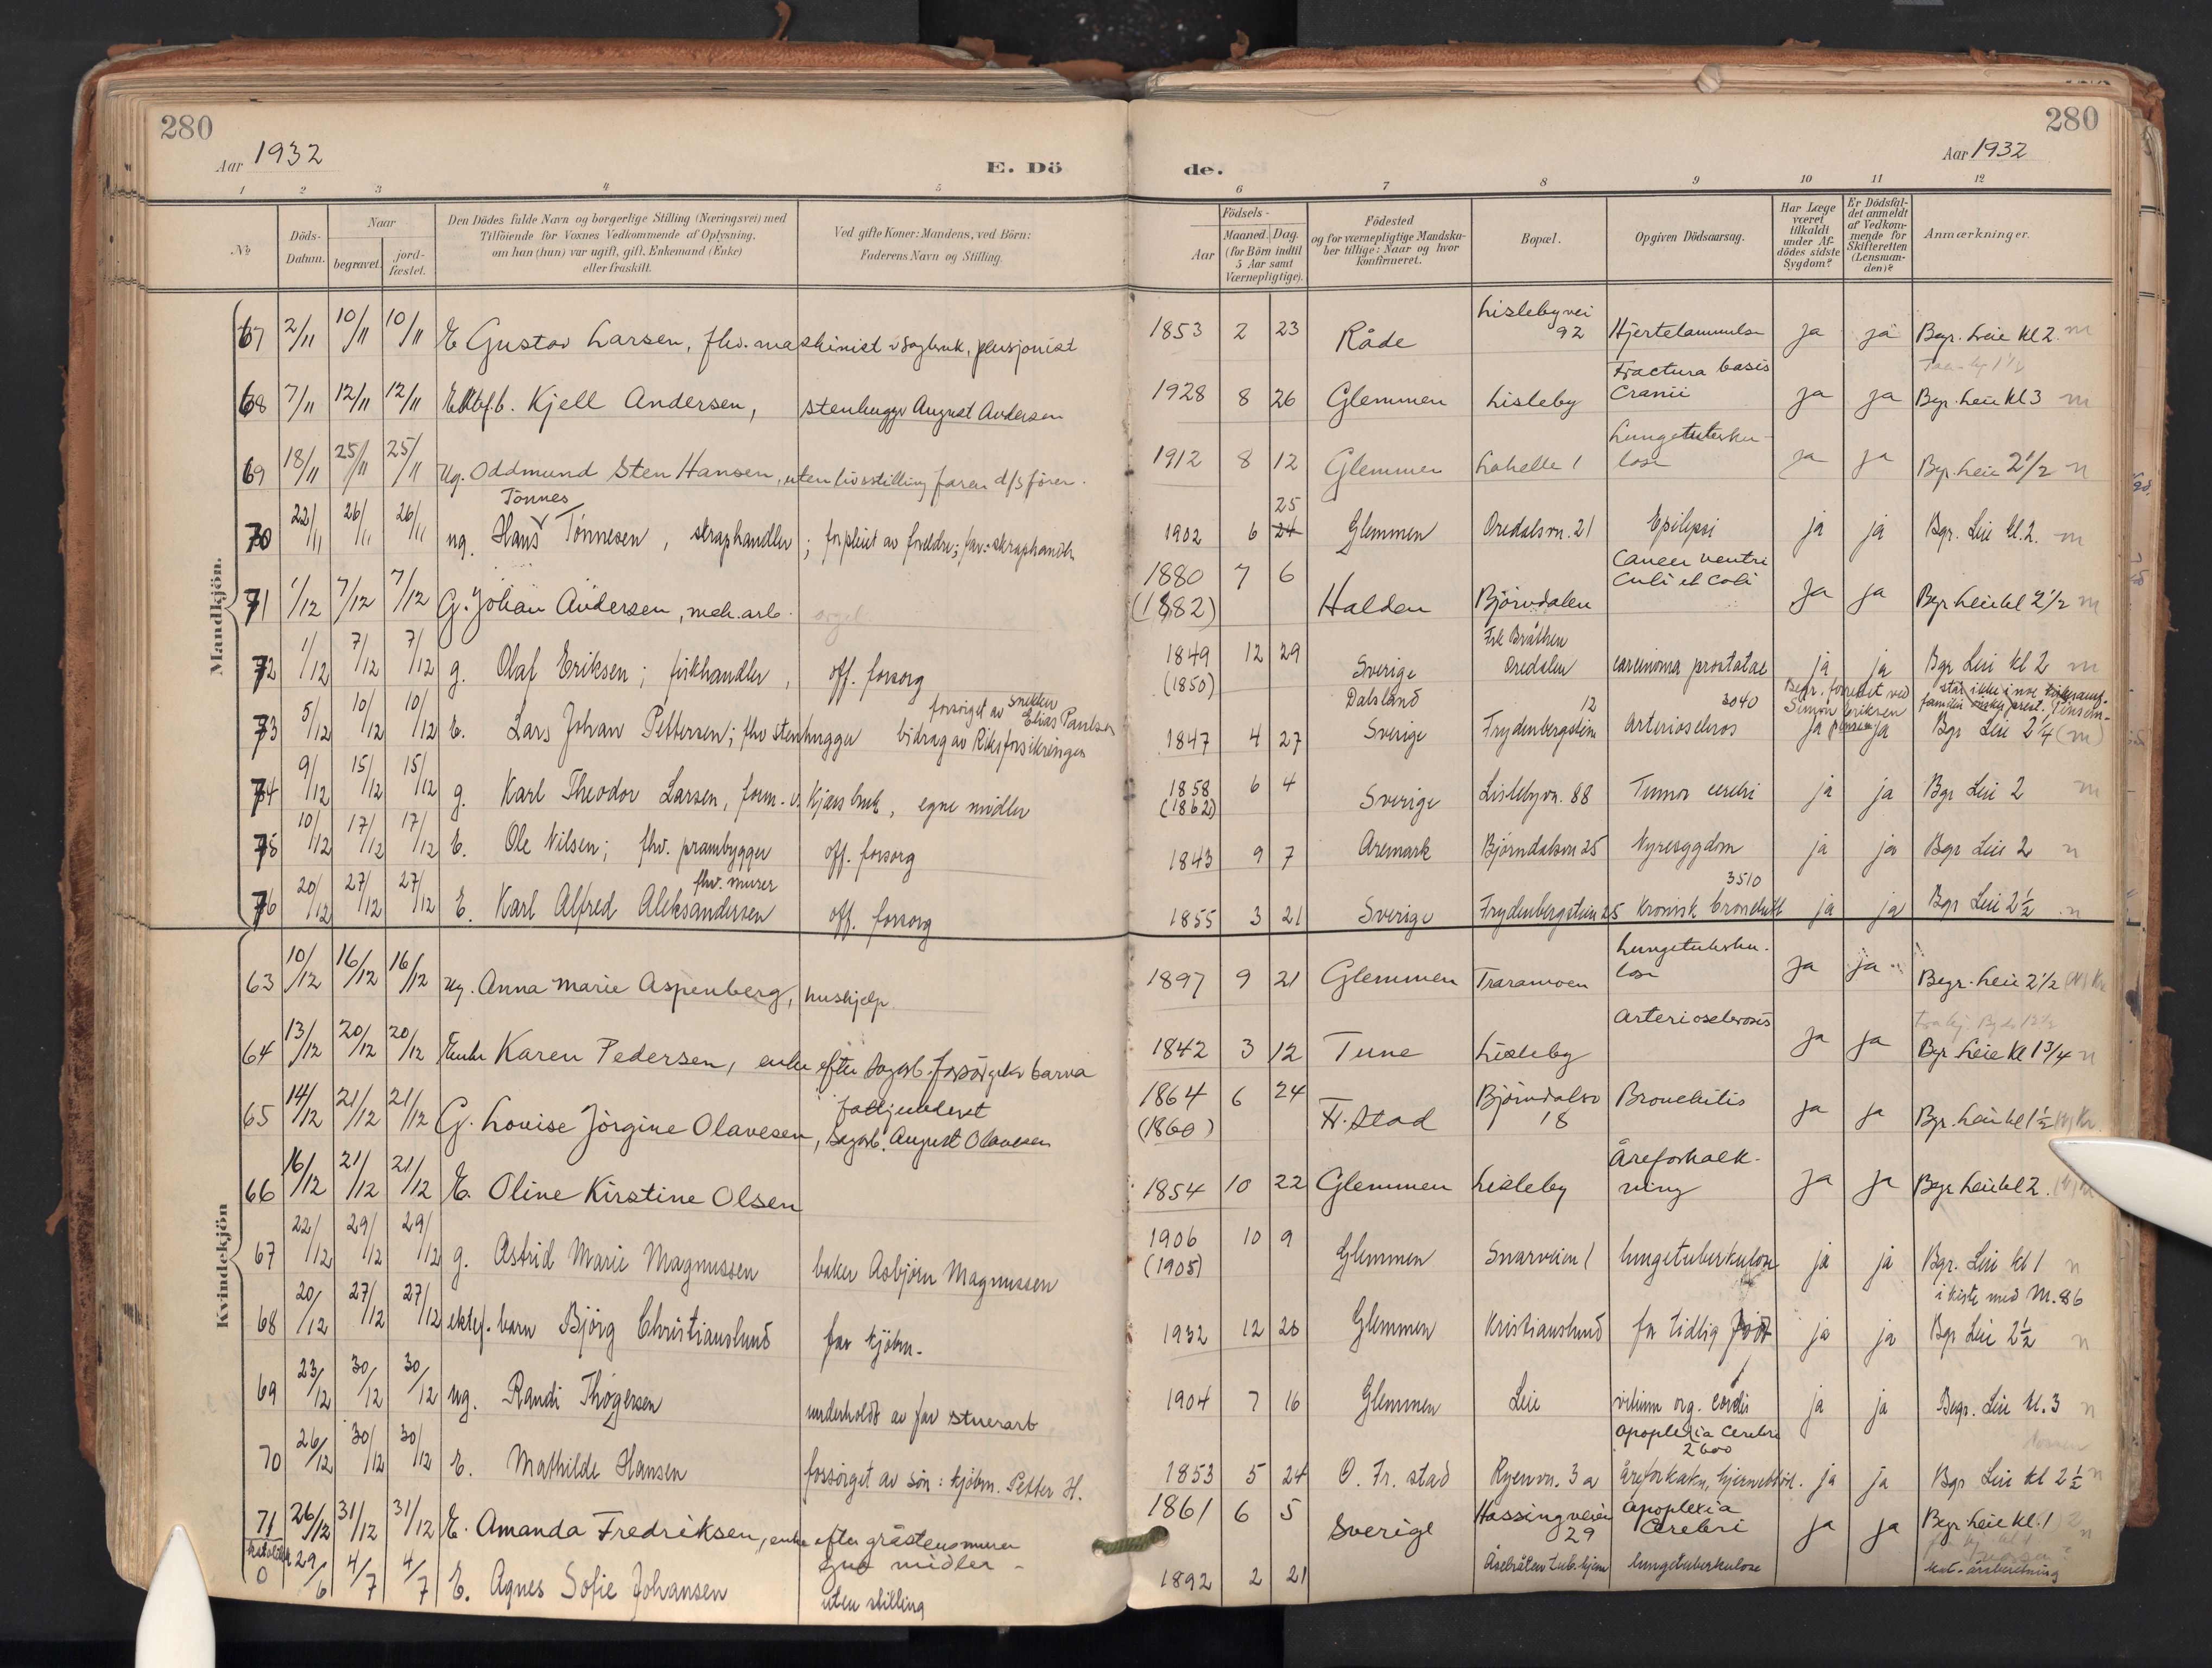 280
Aar 1932
E. Dö
1 2 3 4 5
№
Döds-Datum.
Naar
begravet.
jord-fæstet.
Den Dödes fulde Navn og borgerlige Stilling (Næringsvei) med
Tilföiende for Voxnes Vedkommende af Oplysning.
om han (hun) var ugift, gift, Enkemand (Enke)
eller fraskilt.
Ved gifte Koner: Mandens, ved Börn:
Faderens Navn og Stilling.
280
Aar 1932
de.
6 7 8 9 10 11 12
Födsels-
Aar
Maaned. Dag.
(for Börn indtil
5 Aar samt
Værnepligtige).
Födested
og for værnepligtige Mandska-
ber tillige: Naar og hvor
konfirmeret.
Bopæl.
Opgiven Dödsaarsag.
Har Læge
været
tilkaldt
under Af-
dödes sidste
Sygdom?
Er Dödsfal-
det anmeldt
af Vedkom-
mende for
Skifteretten
(Lensman-
den)?
Anmærkninger.
Mandkjön.
67 2/11 10/11 10/11 E Gustav Larsen, fhv. maskinist v sagbruk, pensjonist 1853 2 23 Råde Lislebyvei 92 Hjertelammelse ja ja Begr. Leie kl 2.
68 7/11 12/11 12/11 Ektef. b. Kjell Andersen, stenhugger August Andersen 1928 8 26 Glemmen Lisleby Fractura basis Cranii ja ja Begr. Leie kl 3
69 18/11 25/11 25/11 Ug. Oddmund Sten Hansen, uten livsstilling faren d/s fører. 1912 8 12 Glemmen Lahelle 1 Lungetuberku-lose ja ja Begr. Leie 2 1/2
70 22/11 26/11 26/11 ug. Hans Tönnes Tönnesen, skraphandler; forpleiet av foreldre; far: skraphandler 1902 6 24 25 Glemmen Oredalsvn. 21 Epilepsi ja ja Bgr. Leie kl. 2.
71 1/12 7/12 7/12 G. Johan Andersen, mek. arb. 1880 (1882) 7 6 Halden Björndalen Cancer ventri Culi et Coli ja ja Begr Leie kl 2 1/2
72 1/12 7/12 7/12 g. Olaf Eriksen; fiskhandler, off. forsorg 1849 (1850) 12 29 Sverige Dalsland Frk Bråthen Oredalen carcinoma prostatae ja ja Bgr Leie kl 2
73 5/12 10/12 10/12 E. Lars Johan Pettersen; fhv stenhugger forsörget av snekker Elias Paulsen bidrag av Riksforsikringen 1847 4 27 Sverige Frydenbergstien 12 Arterioscleros 3040 ja ja Bgr Leie 2 1/4 (m)
74 9/12 15/12 15/12 g. Karl Theodor Larsen, form. v. Kjærs bruk, egne midler 1858 (1862) 6 4 Sverige Lislebyvn. 88 Tumor cerebri ja ja Bgr Leie 2
75 10/12 17/12 17/12 E. Ole Nilsen; fhv. prambygger off. forsorg 1843 9 7 Aremark Björndalsvn 25 Nyresygdom ja ja Bgr Leie 2
76 20/12 27/12 27/12 E. Karl Alfred Aleksandersen fhv. murer off. forsorg 1855 3 21 Sverige Frydenbergstien 25 3510 Kronisk bronchitt ja ja Bgr Leie 2 1/2
Kvindekjön
63 10/12 16/12 16/12 Ug. Anna Marie Aspenberg, hushjelp. 1897 9 21 Glemmen Traramoen Lungetuberku-lose ja ja Begr. Leie 2 1/2
64 13/12 20/12 20/12 Enke Karen Pedersen, enke efter sagarb. forsörget av barna 1842 3 12 Tune Lisleby Arteriosclerosis ja ja Bgr. Leie kl 1 3/4
65 14/12 21/12 21/12 G. Lovise Jörgine Olavesen, sagarb. August Olavesen 1864 (1860) 6 24 Fr. Stad Björndalsv 18 Bronchitis ja ja Bgr. Leie kl 1 1/2
66 16/12 21/12 21/12 E. Oline Kirstine Olsen 1854 10 22 Glemmen Lisleby Åreforkalk-ning ja ja Begr Leie kl 2.
67 22/12 29/12 29/12 g. Astrid Marie Magnussen baker Asbjörn Magnussen 1906 (1905) 10 9 Glemmen Snarveien 1 lungetuberkulose ja ja Bgr. Leie kl 1
68 20/12 27/12 27/12 ektef. barn Bjørg Christianslund far kjöbm. 1932 12 20 Glemmen Kristianslund for tidlig född ja ja i kiste med M. 86 Bgr Leie 2 1/2
69 23/12 30/12 30/12 ug. Randi Thøgersen underholdt av far stuerarb 1904 7 16 Glemmen Leie vitium org. cordis ja ja Begr. Leie kl. 3
70 26/12 30/12 30/12 E. Mathilde Hansen forsörget av sön: kjöbm. Petter H. 1853 5 24 O. Fr. stad Ryenvn. 3 a apoplexia Cerebri 2600 åreforkalkn, ja ja Bgr Leie kl 2 1/2
71 26/12 31/12 31/12 E. Amanda Fredriksen, enke efter gråstensmurer egne midler 1861 6 5 Sverige Hassingveien 29 Apoplexia Cerebri ja ja Begr. Leie kl. 1
0 29/6 4/7 4/7 E. Agnes Sofie Johansen uten stilling 1892 2 21 lungetuberkulose